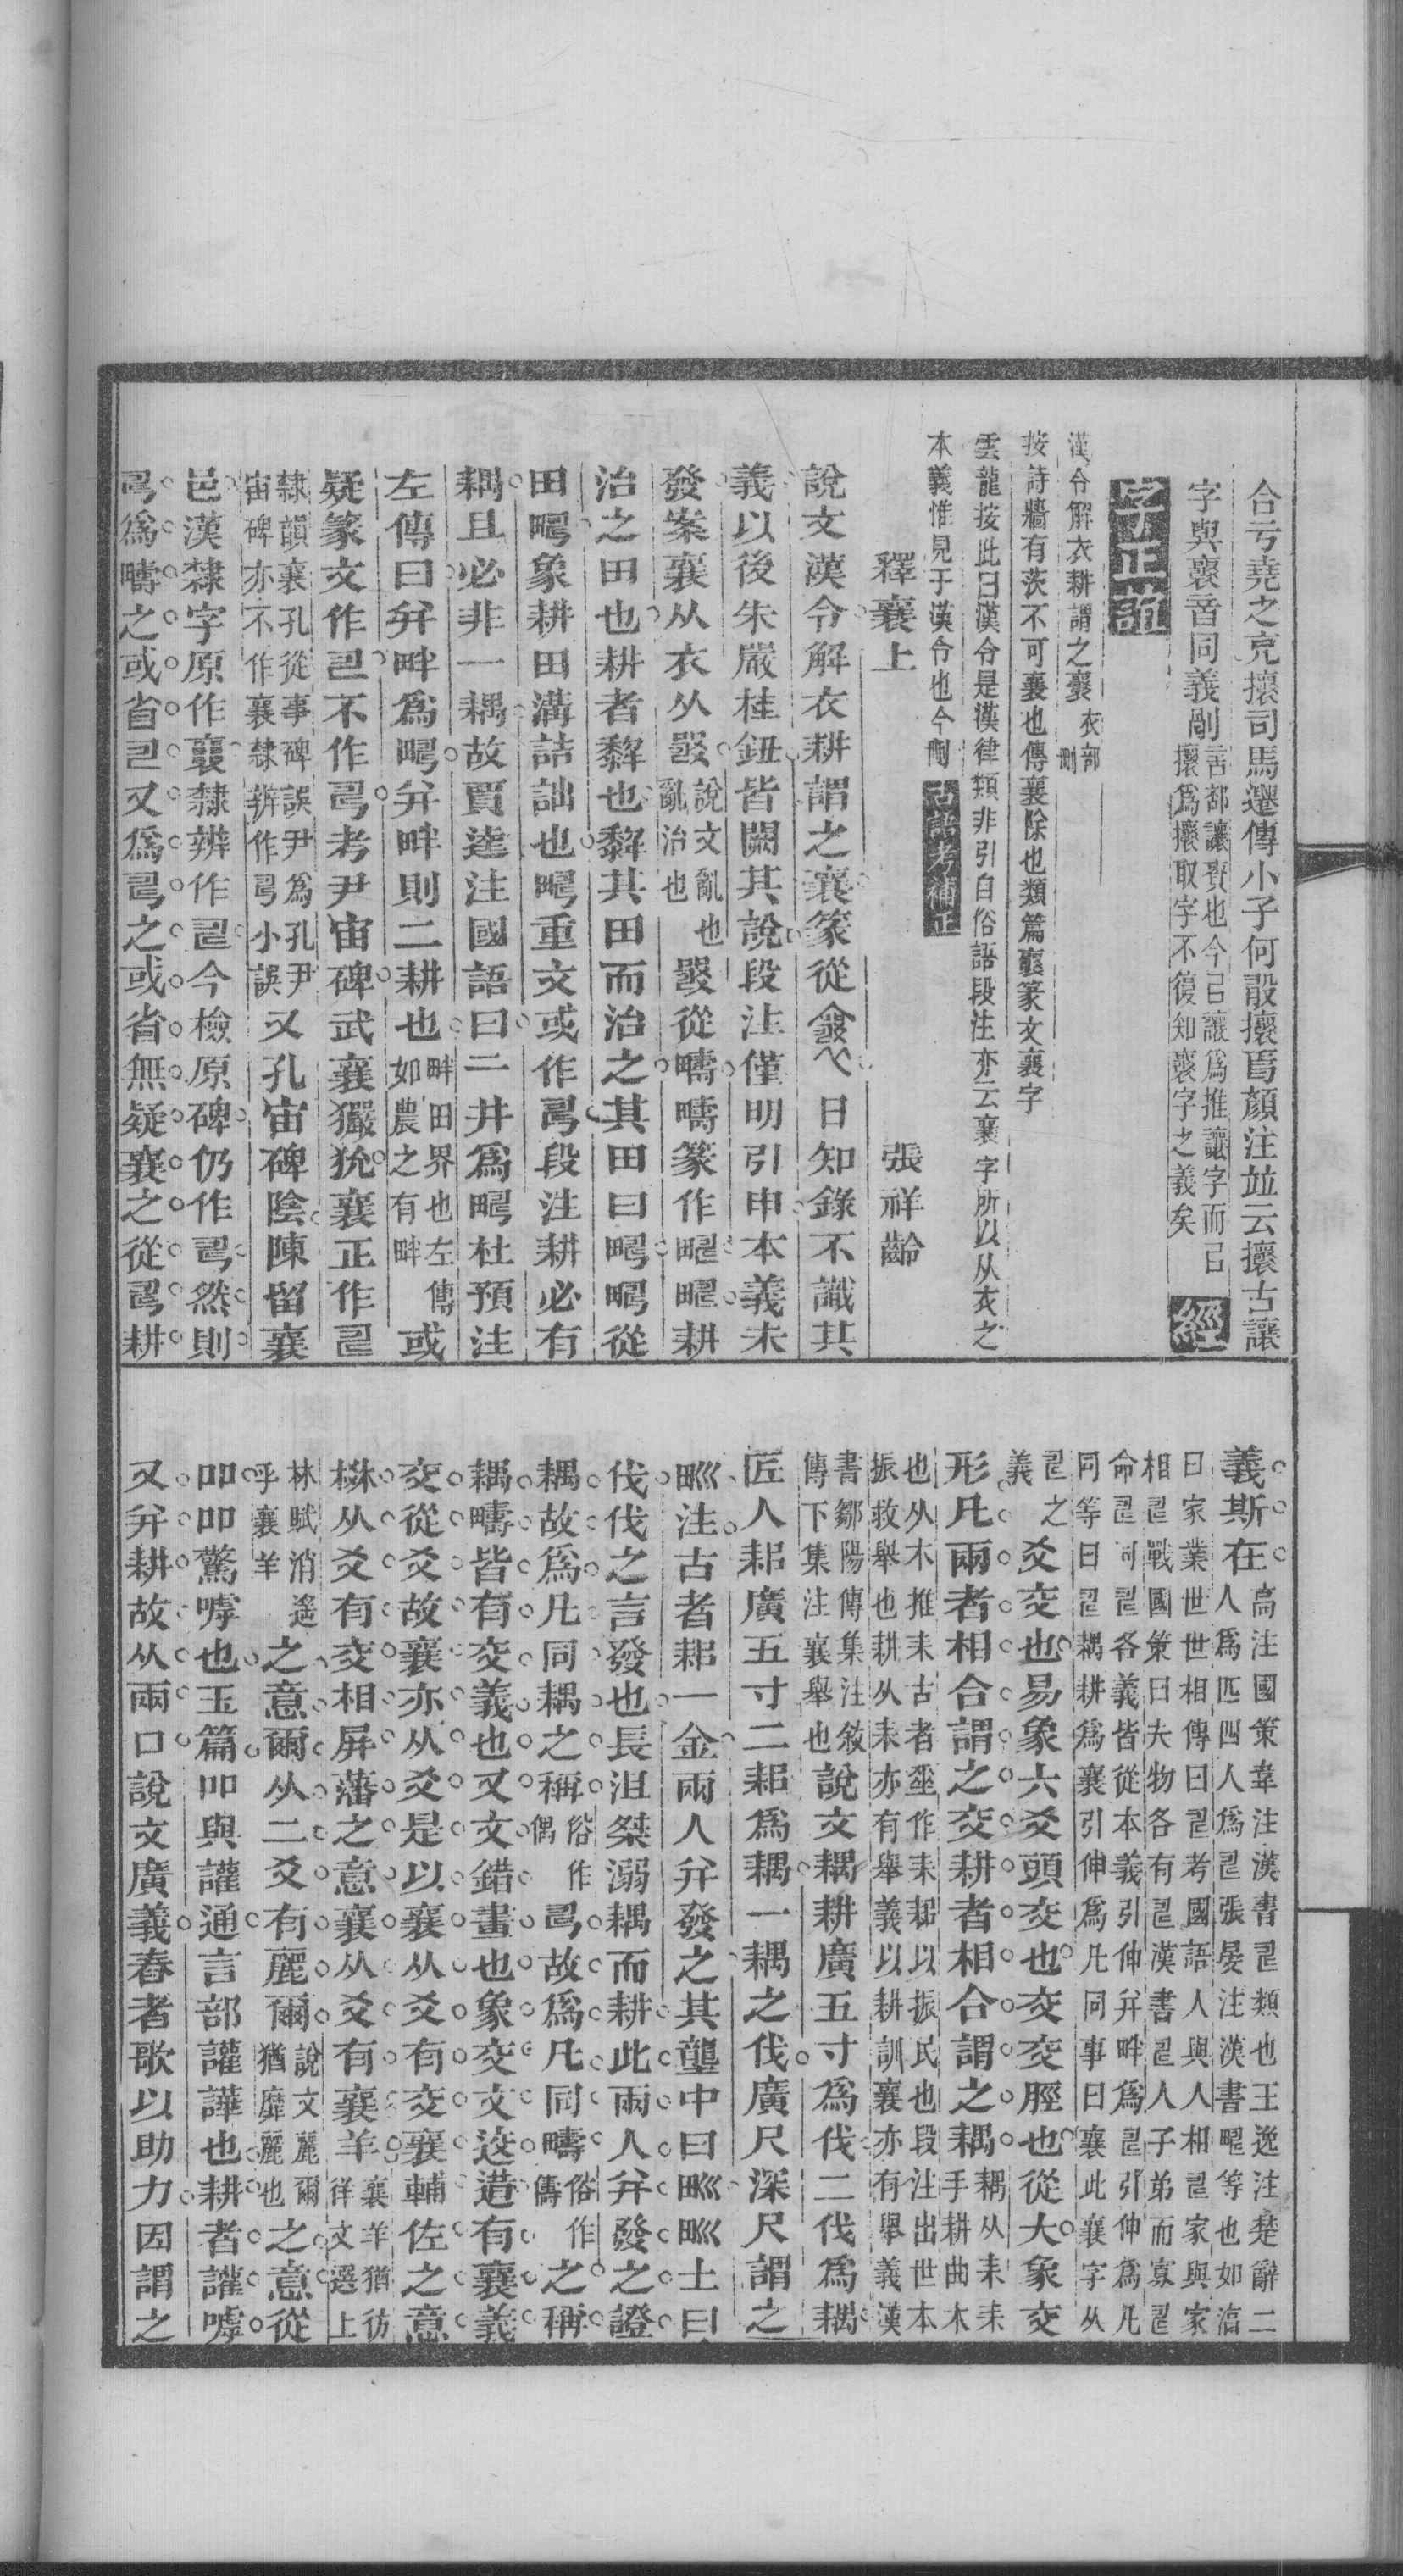 合亏堯之克攘司馬遷傳小子何敢攘焉顏注竝云攘古讓
字與襄音同義㓮言部讓責也今㠯讓爲推讓字而㠯
攘爲攘取字不復知襄字之義矣
經
漢令解衣耕謂之襄衣部
按詩牆有茨不可襄也傳襄除也類篇襄篆文襄字
雲龍按此曰漢令是漢律類非引自俗語段注亦云襄字所以从衣之
本義惟見于漢令也今刪古語考補正
釋襄上 張祥齡
說文漢令解衣耕謂之襄篆從 日知錄不識其
義以後朱嚴桂鈕皆闕其說段注僅明引申本義未
發案襄从衣从𤕦說文亂也
亂治也𤕦從疇疇篆作 耕
治之田也耕者犂也犂其田而治之其田曰 從
田 象耕田溝詰詘也 重文或作 段注耕必有
耦且必非一耦故賈逵注國語曰二井爲疇杜預注
左傳曰并畔爲疇并畔則二耕也畔田界也左傳
如農之有畔或
疑篆文作 不作 考尹宙碑武襄玁狁襄正作
隸韻襄孔從事碑誤尹爲孔尹
宙碑亦不作襄隸辨作 小誤又孔宙碑陰陳留襄
邑漢隸字原作襄隸辨作 今檢原碑仍作 然則
 爲疇之或省 又爲 之或省無疑襄之從 耕
義斯在高注國策韋注漢書 類也王逸注楚辭二
人爲匹四人爲 張晏注漢書疇等也如湻
曰家業世世相傳曰 考國語人與人相 家與家
相 戰國策曰夫物各有 漢書 人子弟而寡
命 各義皆從本義引伸并畔爲 引伸爲凡
同等曰 耦耕爲襄引伸爲凡同事曰襄此襄字从
 之
義爻交也易象六爻頭交也交交脛也從大象交
形凡兩者相合謂之交耕者相合謂之耦耦从耒耒
手耕曲木
也从木推耒古者垂作耒耜以振民也段注出世本
振救舉也耕从耒亦有舉義以耕訓襄亦有舉義漢
書鄒陽傳集注
傳下集注襄舉也說文耦耕廣五寸爲伐二伐爲耦
匠人耜廣五寸二耜爲耦一耦之伐廣尺深尺謂之
𤰝注古者耜一金兩人并發之其壟中曰𤰝𤰝土曰
伐伐之言發也長沮桀溺耦而耕此兩人并發之證
耦故爲凡同耦之稱俗作
偶 故爲凡同疇俗作
儔之稱
耦疇皆有交義也爻文錯畫也象交文这遣有襄義
交從爻故襄亦从爻是以襄从爻有交襄輔佐之意
棥从爻有交相屏藩之意襄从爻有襄羊襄羊猶彷
徉文選上
林賦消遙
乎襄羊之意爾从二爻有麗爾說文麗爾
猶靡麗也之意從
吅吅驚嘑也玉篇吅與讙通言部讙譁也耕者讙嘑
又并耕故从兩口說文廣義舂者歌以助力因謂之